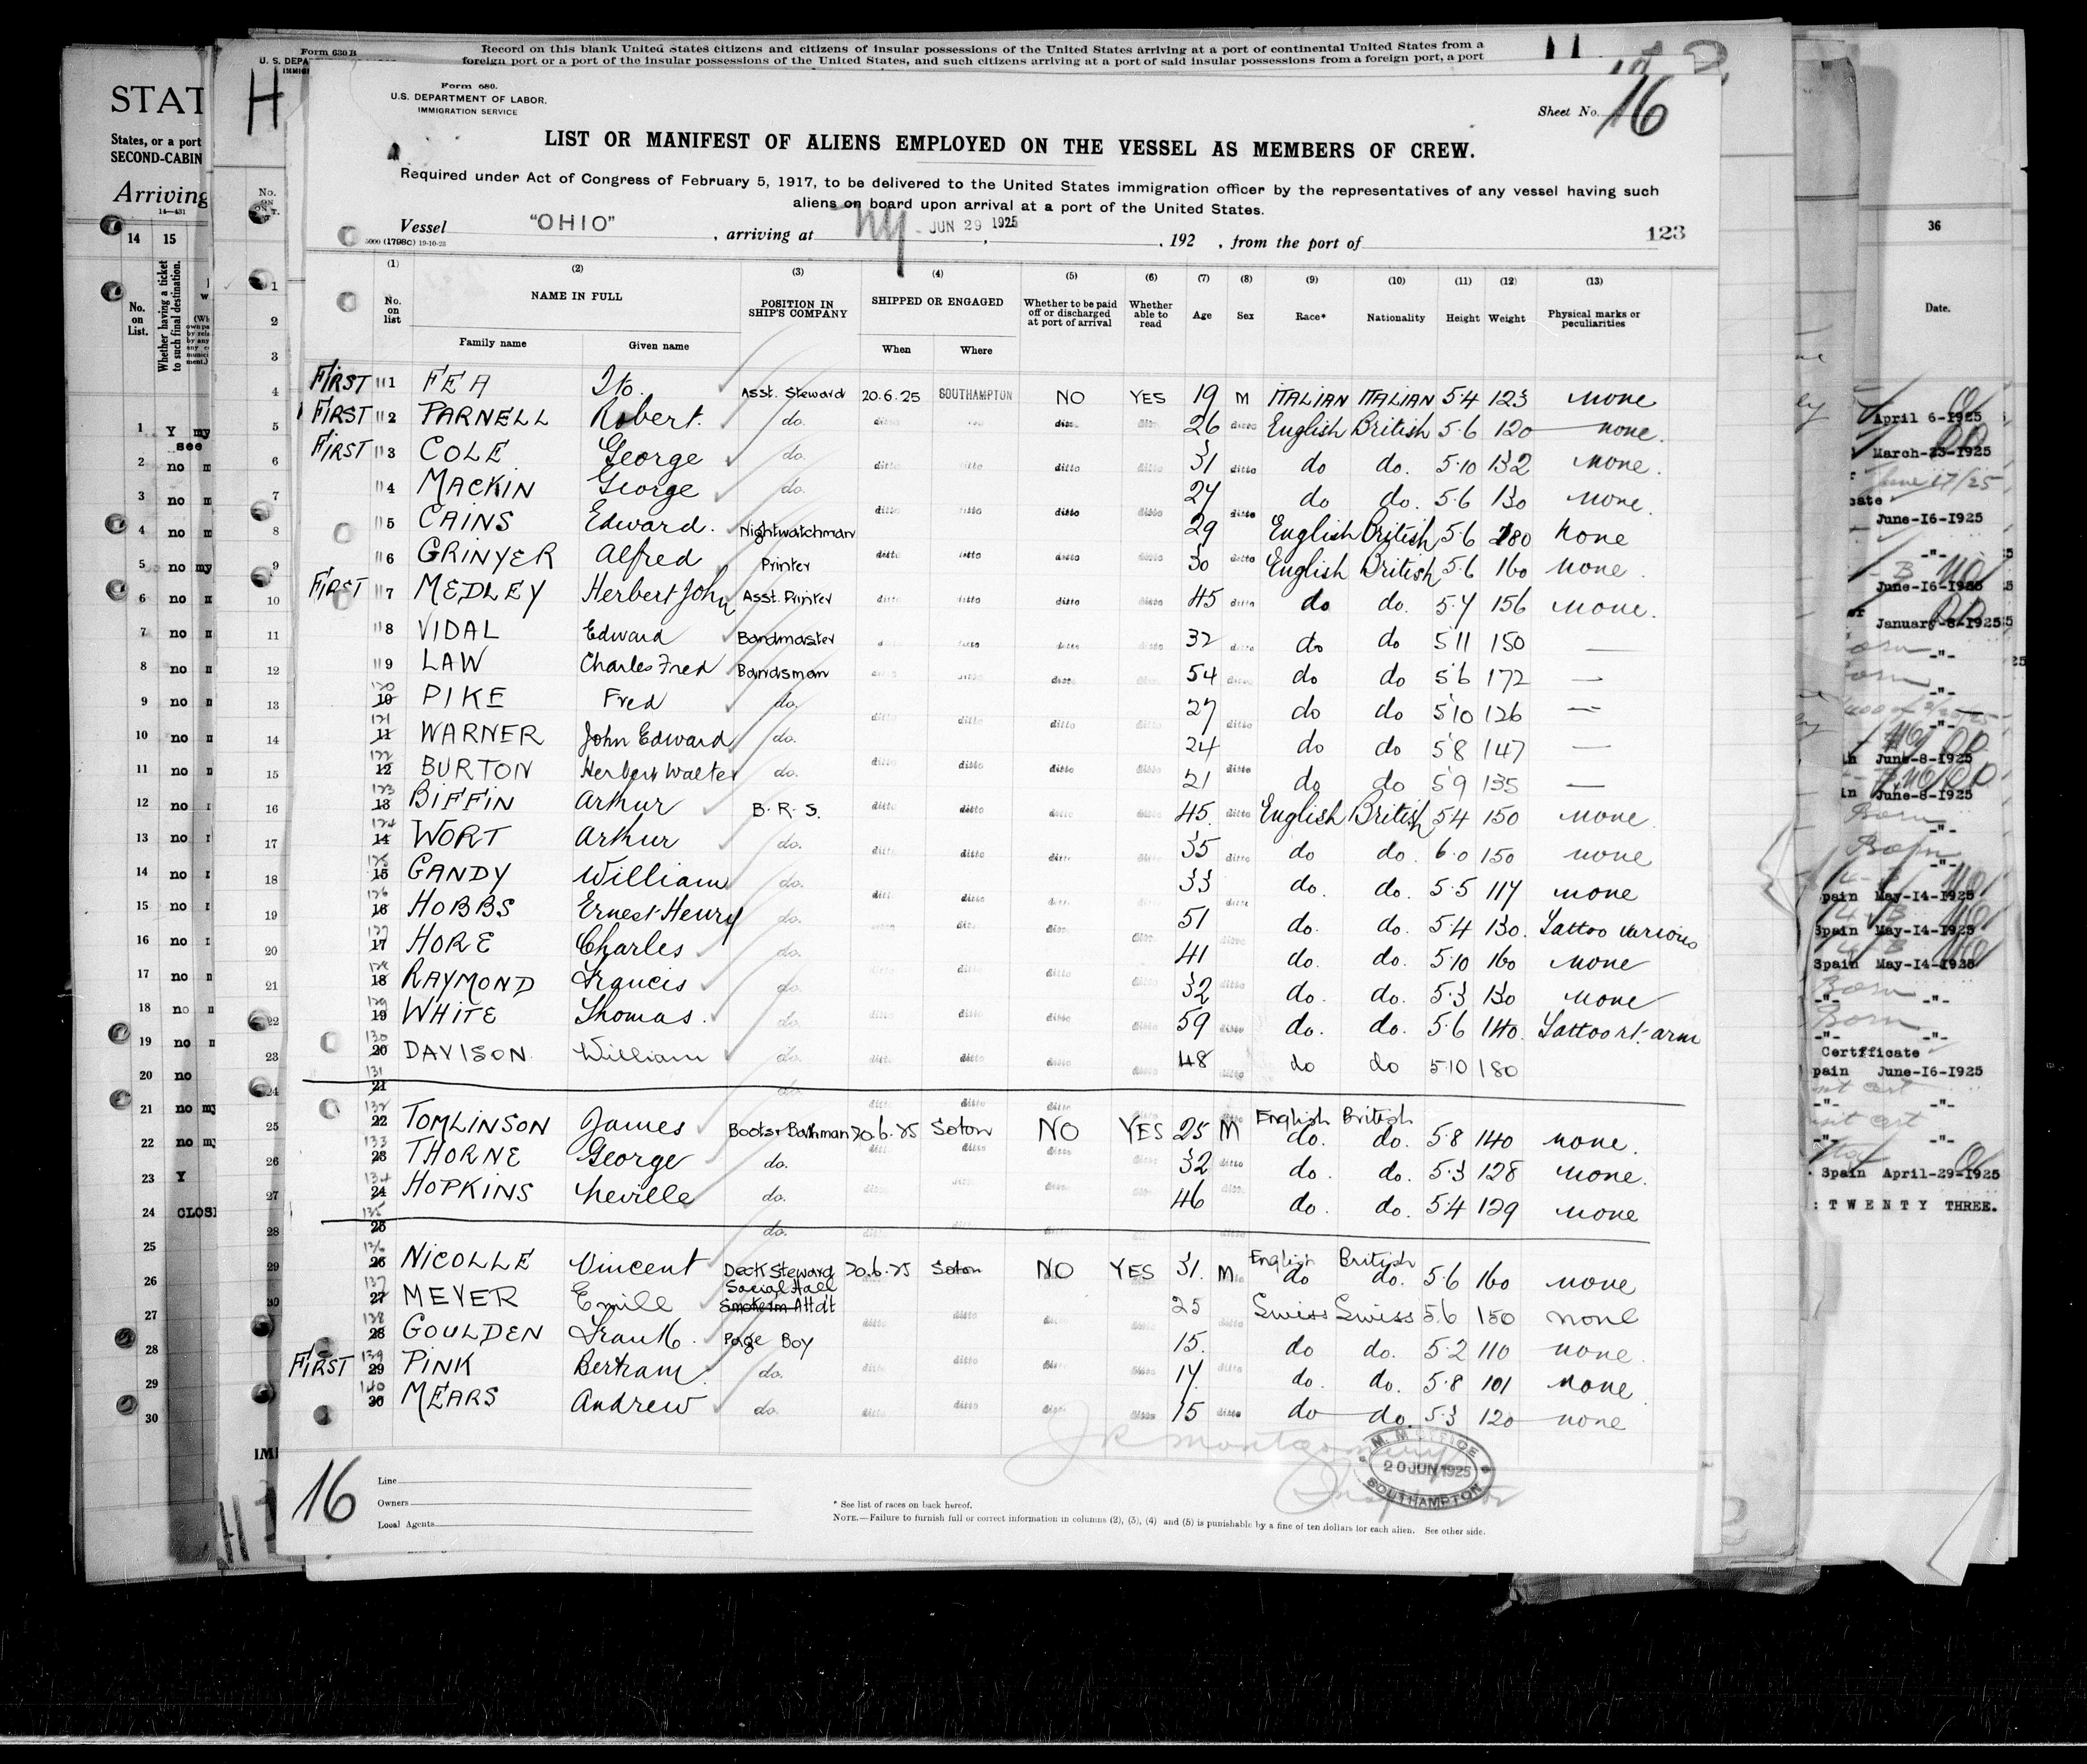 Form 630 B
U. S. DEPA
IMMIG
Record on this blank United States citizens and citizens of insular possessions of the United States arriving at a port of continental United States from a
foreign port or a port of the insular possessions of the United States, and such citizens arriving at a port of said insular possessions from a foreign port, a port
STAT
States, or a port
SECOND-CABIN
Arriving
Form 680.
U.S. DEPARTMENT OF LABOR.
IMMIGRATION SERVICE
Sheet No. 16
LIST OR MANIFEST OF ALIENS EMPLOYED ON THE VESSEL AS MEMBERS OF CREW.
Required under Act of Congress of February 5, 1917, to be delivered to the United States immigration officer by the representatives of any vessel having such
aliens on board upon arrival at a port of the United States.
Vessel "OHIO" , arriving at NY JUN 29 1925 , 192 , from the port of 123
5000 (1798C) 19-10-23
(1) (2) (3) (4) (5) (6) (7) (8) (9) (10) (11) (12) (13)
No. on list NAME IN FULL POSITION IN SHIP'S COMPANY SHIPPED OR ENGAGED Whether to be paid off or discharged at port of arrival Whether able to read Age Sex Race* Nationality Height Weight Physical marks or peculiarities
Family name Given name When Where
FIRST 111 FEA Ito. Asst. Steward 20.6.25 SOUTHAMPTON NO YES 19 M ITALIAN ITALIAN 5 4 123 none
FIRST 112 PARNELL Robert. do. ditto ditto 26 ditto English British 5.6 120 none.
FIRST 113 COLE George do. ditto ditto ditto ditto 31 ditto do do. 5.10 132 none.
114 MACKIN George do. ditto ditto ditto ditto 27 ditto do do. 5.6 130 none.
115 CAINS Edward. Nightwatchman 29 English British 5.6 180 none
116 GRINYER Alfred Printer ditto ditto ditto ditto 30 ditto English British 5.6 160 none.
FIRST 117 MEDLEY Herbert John Asst. Printer ditto ditto ditto ditto 45 ditto do do. 5.7 156 none.
118 VIDAL Edward Bandmaster ditto ditto 32 ditto do do 5 11 150 —
119 LAW Charles Fred Bandsman ditto ditto 54 ditto do do 5 6 172 —
120 10 PIKE Fred do. ditto ditto ditto 27 ditto do do 5 10 126 —
121 11 WARNER John Edward do. ditto ditto ditto 24 ditto do do 5 8 147 —
122 12 BURTON Herbert Walter do. ditto ditto ditto ditto 21 ditto do do 5 9 135 —
123 13 BIFFIN Arthur B.R.S. ditto ditto ditto ditto 45. ditto English British 5 4 150 none.
124 14 WORT Arthur do. ditto ditto ditto 35 ditto do do. 6.0 150 none
125 15 GANDY William do. ditto ditto ditto 33 ditto do. do. 5.5 117 none
126 16 HOBBS Ernest Henry do. ditto ditto 51 do. do. 5.4 130. Tattoo various
127 17 HORE Charles do. ditto ditto 41 do. do. 5.10 160 none
128 18 RAYMOND Francis do. ditto ditto 32 ditto do. do. 5.3 130 none
129 19 WHITE Thomas. do. ditto ditto 59 ditto do. do. 5.6 140. Tattoo rt. arm
130 20 DAVISON William do. ditto ditto 48 ditto do do 5.10 180
131 21 do.
132 22 TOMLINSON James Boots & Bathman 20.6.25 Soton NO YES 25 M English British do. do. 5.8 140 none.
133 23 THORNE George do. ditto ditto 32 ditto do. do. 5.3 128 none.
134 24 HOPKINS Neville do. ditto 46 ditto do. do. 5.4 129 none
135 25 do.
136 26 NICOLLE Vincent Deck Steward 20.6.25 Soton NO YES 31. M. English British do do. 5.6 160 none
137 27 MEYER Emile Social Hall Smokerm Attdt ditto ditto 25 ditto Swiss Swiss 5.6 150 none
138 28 GOULDEN Frank. Page Boy ditto 15. do do. 5.2 110 none.
FIRST 139 29 PINK Bertram. do. ditto ditto 17. ditto do. do. 5.8 101 none
140 30 MEARS Andrew do. ditto ditto ditto ditto 15 ditto do do. 5.3 120 none
J R Montgomery
M. M. OFFICE
20 JUN 1925
SOUTHAMPTON
16
Line
Owners
Local Agents
* See list of races on back hereof.
NOTE.—Failure to furnish full or correct information in columns (2), (3), (4) and (5) is punishable by a fine of ten dollars for each alien. See other side.
36
Date.
April 6-1925
March-23-1925
June 17/25
June-16-1925
June-16-1925
January-8-1925
June-8-1925
June-8-1925
Born
Born
pain May-14-1925
Spain May-14-1925
Spain May-14-1925
Born
Born
Certificate
pain June-16-1925
Spain April-29-1925
: TWENTY THREE.